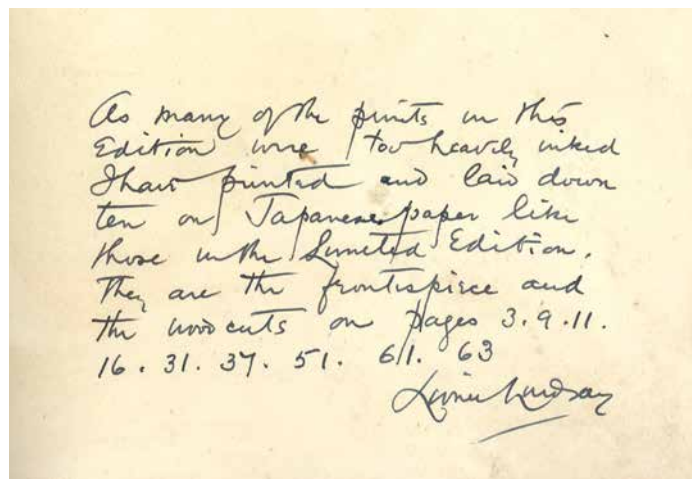 As many of the prints in this
Edition were too heavily inked
I have printed and laid down
ten on Japanese paper like
those in the Limited Edition.
They are the frontispiece and
the woodcuts on pages 3.9.11.
16. 31. 37. 51. 61. 63
Lionel Lindsay